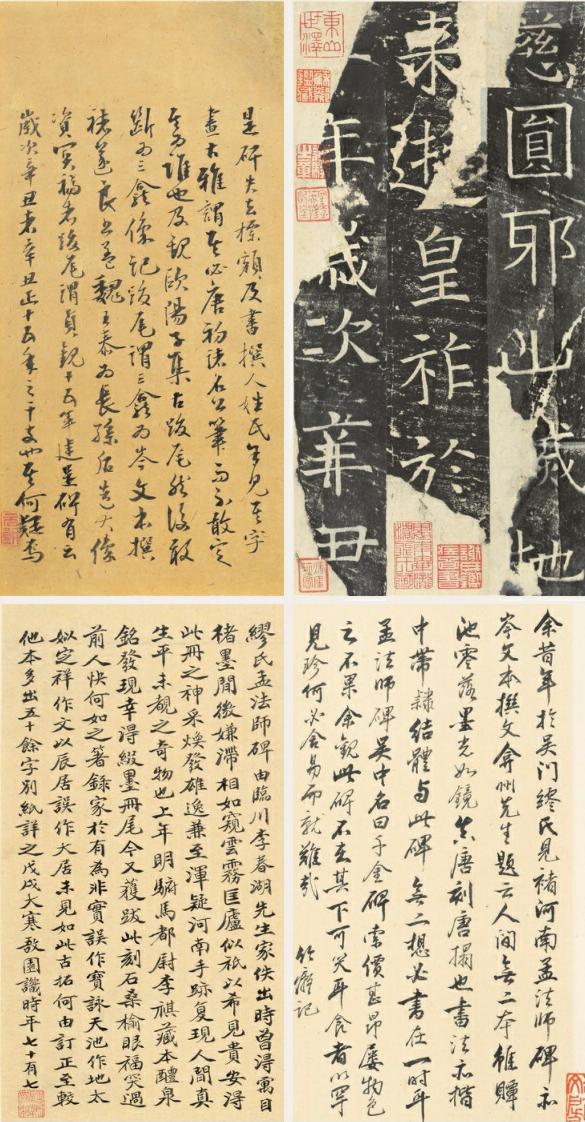 慈圓邪山歲地
逮皇祚於
年歲次辛丑
東山世澤
是碑失去標額及書撰人姓氏余見其字
畫古雅謂其必唐初諸名公筆而不敢定
為誰也及觀歐陽子集古跋尾然後敢
斷為三龕像記跋尾謂三龕為岑文本撰
褚遂良書蓋魏王泰為長孫后造大像
資冥福者跋尾謂貞觀十五年造是碑有云
歲次辛丑考辛丑正十五年之干支也其何疑焉
余昔年於吳門繆氏見褚河南孟法師碑亦
岑文本撰文弇州先生題云人間無二本雖賸
池零落墨光如鏡真唐刻唐搨也書法亦楷
中帶隸結體與此碑無二想必書在一時耳
孟法師碑吳中名曰千金碑索價甚昂屢物色
之不果余觀此碑不在其下可笑耳食者以罕
見珍何必舍易而就難哉 竹癡記
繆氏孟法師碑由臨川李春湖先生家佚出時曾得寓目
楮墨間微嫌滯相如窺雲霧匡廬似祇以希見貴安得
此冊之神采煥發雄逸兼至渾疑河南手跡復現人間真
生平未覯之奇物也上年明駙馬都尉李祺藏本醴泉
銘發現幸得綴墨冊尾今又獲跋此刻石桑榆眼福突過
前人快何如之箸錄家於有為非實誤作寶詠天池作地太
姒定祥作文以辰居誤作大居未見如此古拓何由訂正至較
他本多出五十餘字別紙詳之戊戌大寒敔園識時年七十有七